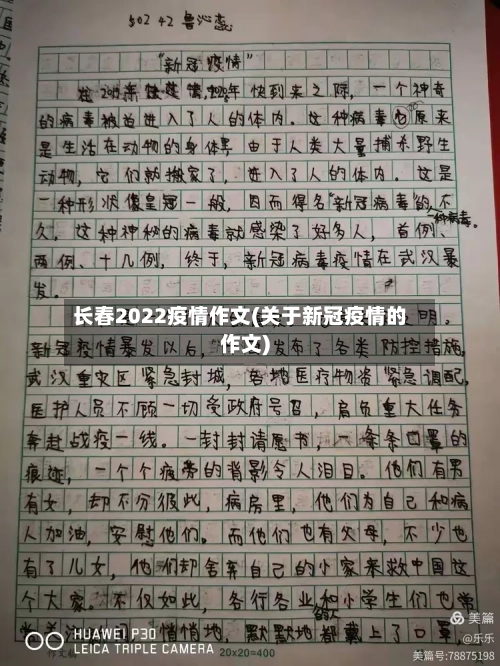 502 42 鲁沁蕊
“新冠疫情”
在2019年 2020年快到来之际，一个神奇
的病毒被迫进入了人的体内。这种病毒原来
是生活在动物的身体里，由于人类大量捕杀野生
动物，它们就搬家了，进入了人的体内。这是
一种形状像皇冠一般，因而得名“新冠病毒”的
一种病毒。
不
久，这种神秘的病毒就感染了好多人，首例、
两例、十几例，终于，新冠病毒疫情在武汉暴
发。
长春2022疫情作文(关于新冠疫情的
作文)
明，
新冠疫情暴发以后，发布了各类防控措施，
武汉重灾区紧急封城，各地医疗物资紧急调配，
医护人员不顾一切受政府号召，肩负重大任务
奔赴战疫一线。一封封请愿书，一条条口罩的
痕迹，一个个疲劳的背影令人泪目。他们有男
有女，却不分彼此，病房里，他们为自己和病
人加油，安慰他们。而他们也有父母，不少也
有了儿女，他们却舍弃自己的小家来救中国这
个大家。不仅如此，各行各业的人和小学生们也常
悄悄地，默默地都戴上了口罩，
HUAWEI P30
LEICA TRIPLE CAMERA
作文纸
20×20=400
美篇
@乐乐
美篇号:78875198